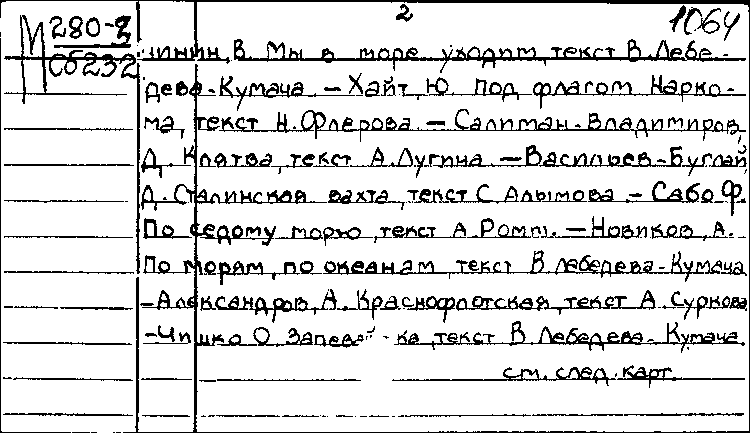 2
1064
М 280-8
Сб232
чинин, В. Мы в море уходим, текст В. Лебе-
дева-Кумача. — Хайт, Ю. Под флагом Нарко-
ма, текст Н. Флерова. — Салиман-Владимиров,
Д. Клятва, текст А. Лугина. — Васильев-Буглай,
Д. Сталинская вахта, текст С. Алымова. — Сабо Ф.
По седому морю, текст А. Ромм. — Новиков, А.
По морям, по океанам, текст В. Лебедева-Кумача
-Александров, А. Краснофлотская, текст А. Суркова
-Чишко О. Запевай-ка, текст В. Лебедева-Кумача.
см. след. карт.